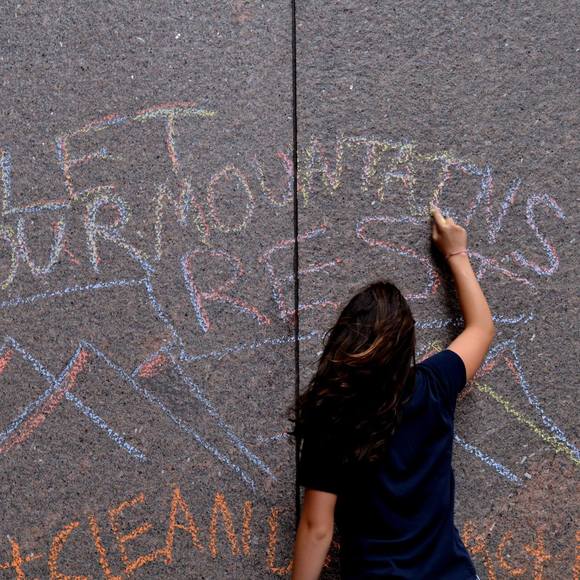 LET
OUR MOUNTAINS
RES
CLEAN